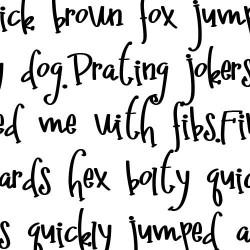 ick brown fox jump
dog.Prating jokers
ed me with fibs.Fi
ards hex bolty quic
s quickly jumped a